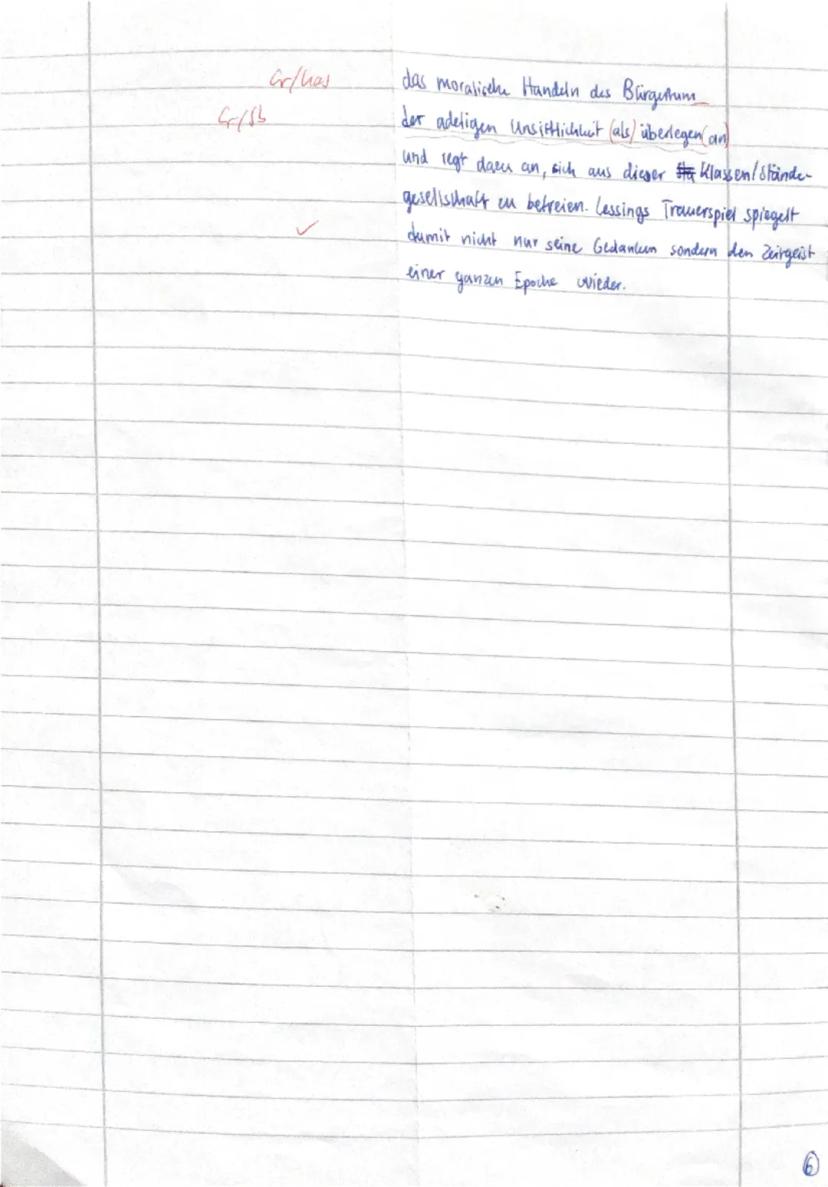 Gr/Kas das moralische Handeln des Bürgertum_
Gr/Sb der adeligen Unsittlichkeit (als) überlegen (an)
und regt dazu an, sich aus dieser Klassen/Stände-
gesellschaft zu befreien. Lessings Trauerspiel spiegelt
✓ damit nicht nur seine Gedanken sondern den Zeitgeist
einer ganzen Epoche wieder.
6